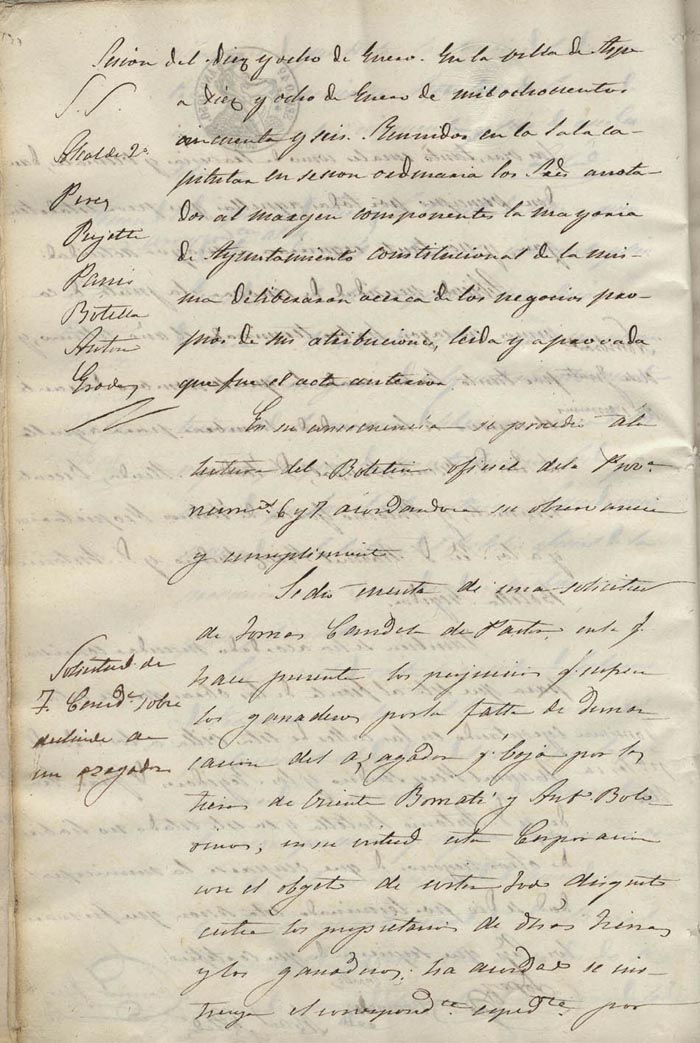 Sesion del diez y ocho de Enero. En la villa de Aspe
a diez y ocho de Enero de mil ochocientos
cincuenta y seis. Reunidos en la Sala ca-
pitular en sesion ordinaria los Sres anota-
dos al margen componentes la mayoria
de Ayuntamiento constitucional de la mis-
ma deliberaron acerca de los negocios pro-
pios de sus atribuciones, leida y aprovada
que fue el acta anterior.
S. S.
Alcalde 2º
Perez
Pujette
Parris
Botella
Anton
Grades
En su consecuencia se procedio a la
lectura del Boletin oficial de la Provª
numºs 6 y 7 acordandose su observancia
y cumplimiento
Se dio cuenta de una solicitud
de Tomas Candela de Pastor, en la q.
hace presente los perjuicios q. sufren
los ganaderos por la falta de demar
cacion del azagador q. baja por las
tierras de Vicente Bonmati y Antº Boto
; en su virtud esta Corporacion
con el objeto de evitar todo disgusto
entre los propietarios de dhas tierras
y los ganaderos; ha acordado se ins-
truya el correspondte espedte por
Solicitud de
T. Candª sobre
deslinde de
un azagador